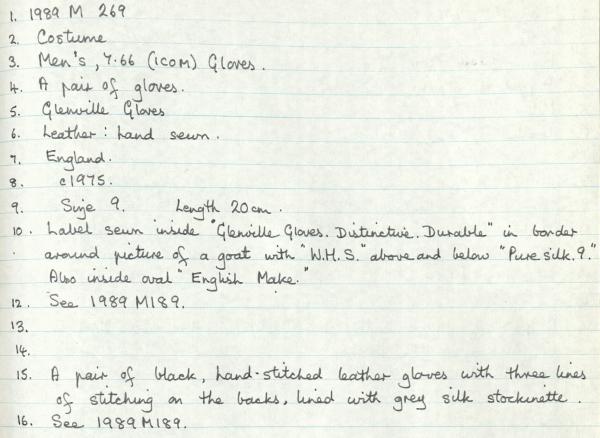 1. 1989 M 269
2. Costume
3. Men's, 7.66 (ICOM) Gloves.
4. A pair of gloves.
5. Glenville Gloves
6. Leather: hand sewn.
7. England.
8. c1975.
9. Size 9. Length 20cm.
10. Label sewn inside "Glenville Gloves. Distinctive. Durable" in border
around picture of a goat with "W.H.S." above and below "Pure silk. 9."
Also inside oval "English Make."
12. See 1989 M189.
13.
14.
15. A pair of black, hand-stitched leather gloves with three lines
of stitching on the backs, lined with grey silk stockinette.
16. See 1989 M189.